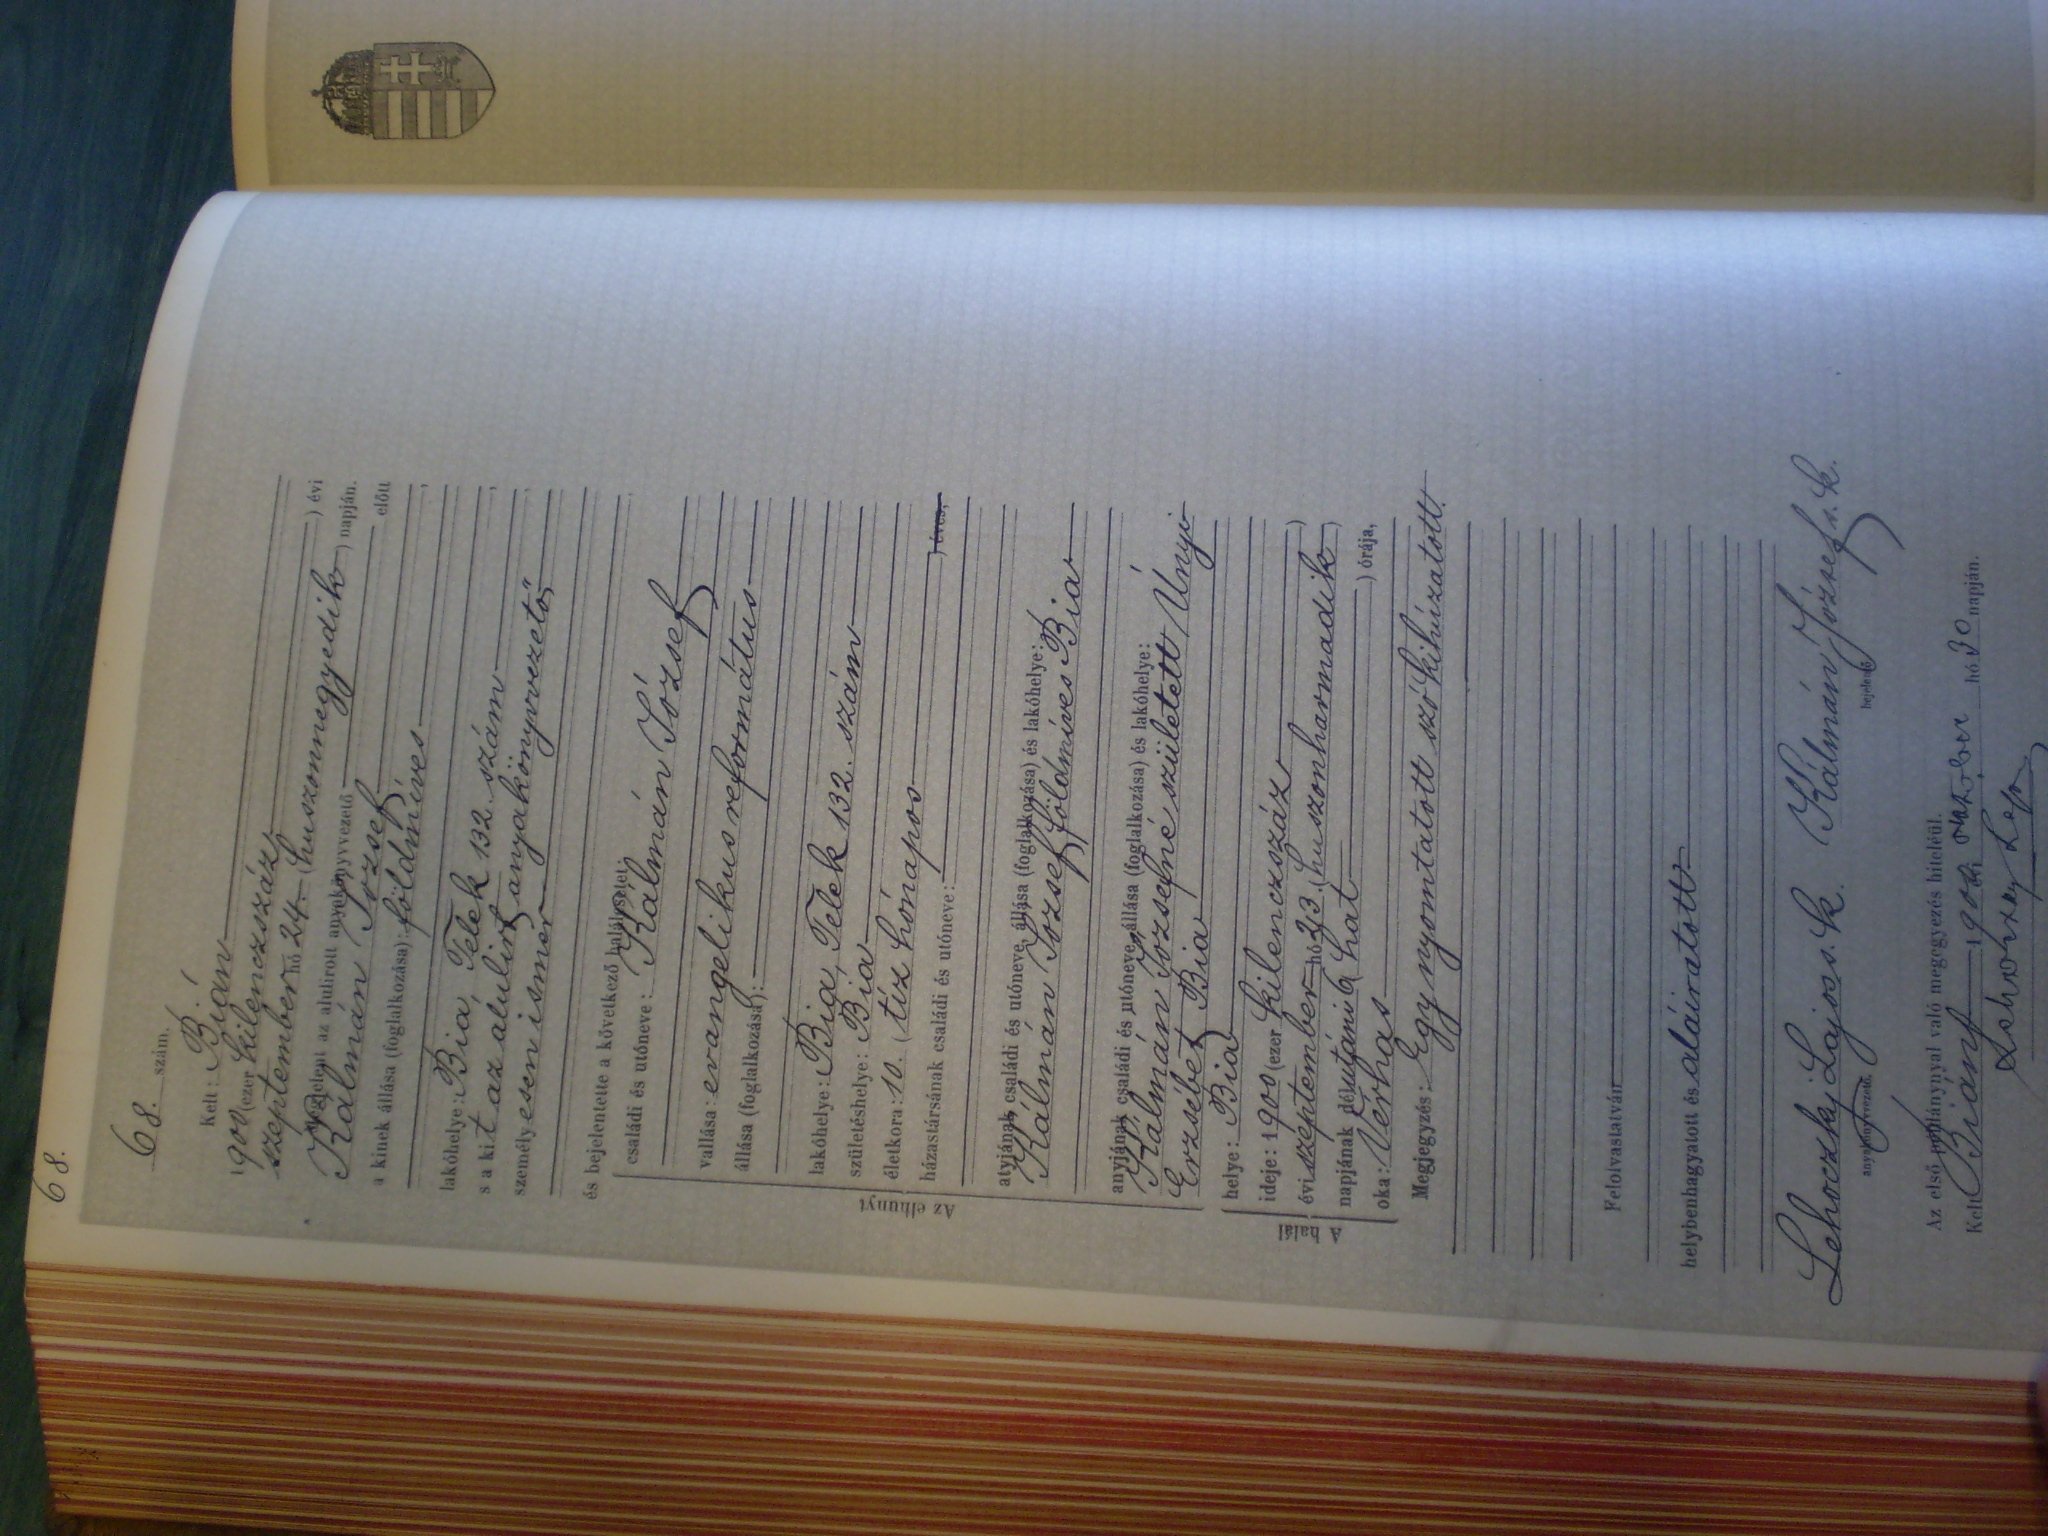 68.
68. szám.
Kelt: Bián
1900 (ezer kilenczszáz
) évi
szeptember hó 24. (huszonnegyedik) napján.
Megjelent az alulirott anyakönyvvezető előtt
Kálmán József
a kinek állása (foglalkozása): földmíves
lakóhelye: Bia, Telek 132. szám
s a kit az alulirt anyakönyvvezető
személyesen ismer
és bejelentette a következő halálesetet:
Az elhunyt
családi és utóneve: Kálmán József
vallása: evangelikus református
állása (foglalkozása):
lakóhelye: Bia, Telek 132. szám
születéshelye: Bia
életkora: 10. (tíz hónapos ) éves,
házastársának családi és utóneve:
atyjának családi és utóneve, állása (foglalkozása) és lakóhelye:
Kálmán József földmíves Bia
anyjának családi és utóneve, állása (foglalkozása) és lakóhelye:
Kálmán Józsefné született Únyi
Erzsébet Bia
A halál
helye: Bia
ideje: 1900 (ezer kilenczszáz )
évi szeptember hó 23. (huszonharmadik )
napjának délutáni 6 (hat ) órája,
oka: Vérhas
Megjegyzés: Egy nyomtatott szó kihúzatott.
Felolvastatván
helybenhagyatott és aláiratott
Lehoczky Lajos s. k. Kálmán József s. k.
anyakönyvvezető. bejelentő
Az első példánynyal való megegyezés hiteléül.
Kelt Bián 1900 október hó 30 napján.